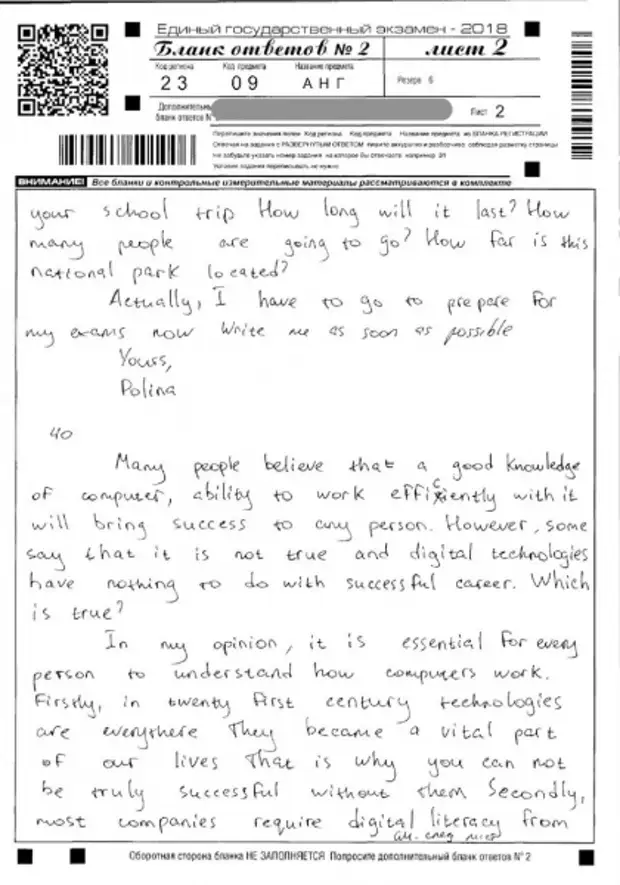 Единый государственный экзамен - 2018
Бланк ответов № 2 лист 2
Код региона Код предмета Название предмета
23 09 АНГ
Резерв 6
Дополнительный
бланк ответов №
Лист 2
Перепишите значения полей Код региона Код предмета Название предмета из БЛАНКА РЕГИСТРАЦИИ
Отвечая на задания с РАЗВЕРНУТЫМ ОТВЕТОМ пишите аккуратно и разборчиво соблюдая разметку страницы
Не забудьте указать номер задания на которое Вы отвечаете например 31
Условия задания переписывать не нужно
ВНИМАНИЕ! Все бланки и контрольные измерительные материалы рассматриваются в комплекте
your school trip How long will it last? How
many people are going to go? How far is this
national park located?
Actually, I have to go to prepare for
my exams now Write me as soon as possible
Yours,
Polina
40
Many people believe that a good knowledge
of computer, ability to work efficiently with it
will bring success to any person. However, some
say that it is not true and digital technologies
have nothing to do with successful career. Which
is true?
In my opinion, it is essential for every
person to understand how computers work.
Firstly, in twenty first century technologies
are everywhere They became a vital part
of our lives That is why you can not
be truly successful without them Secondly,
most companies require digital literacy from
см. след лист
Оборотная сторона бланка НЕ ЗАПОЛНЯЕТСЯ Попросите дополнительный бланк ответов № 2